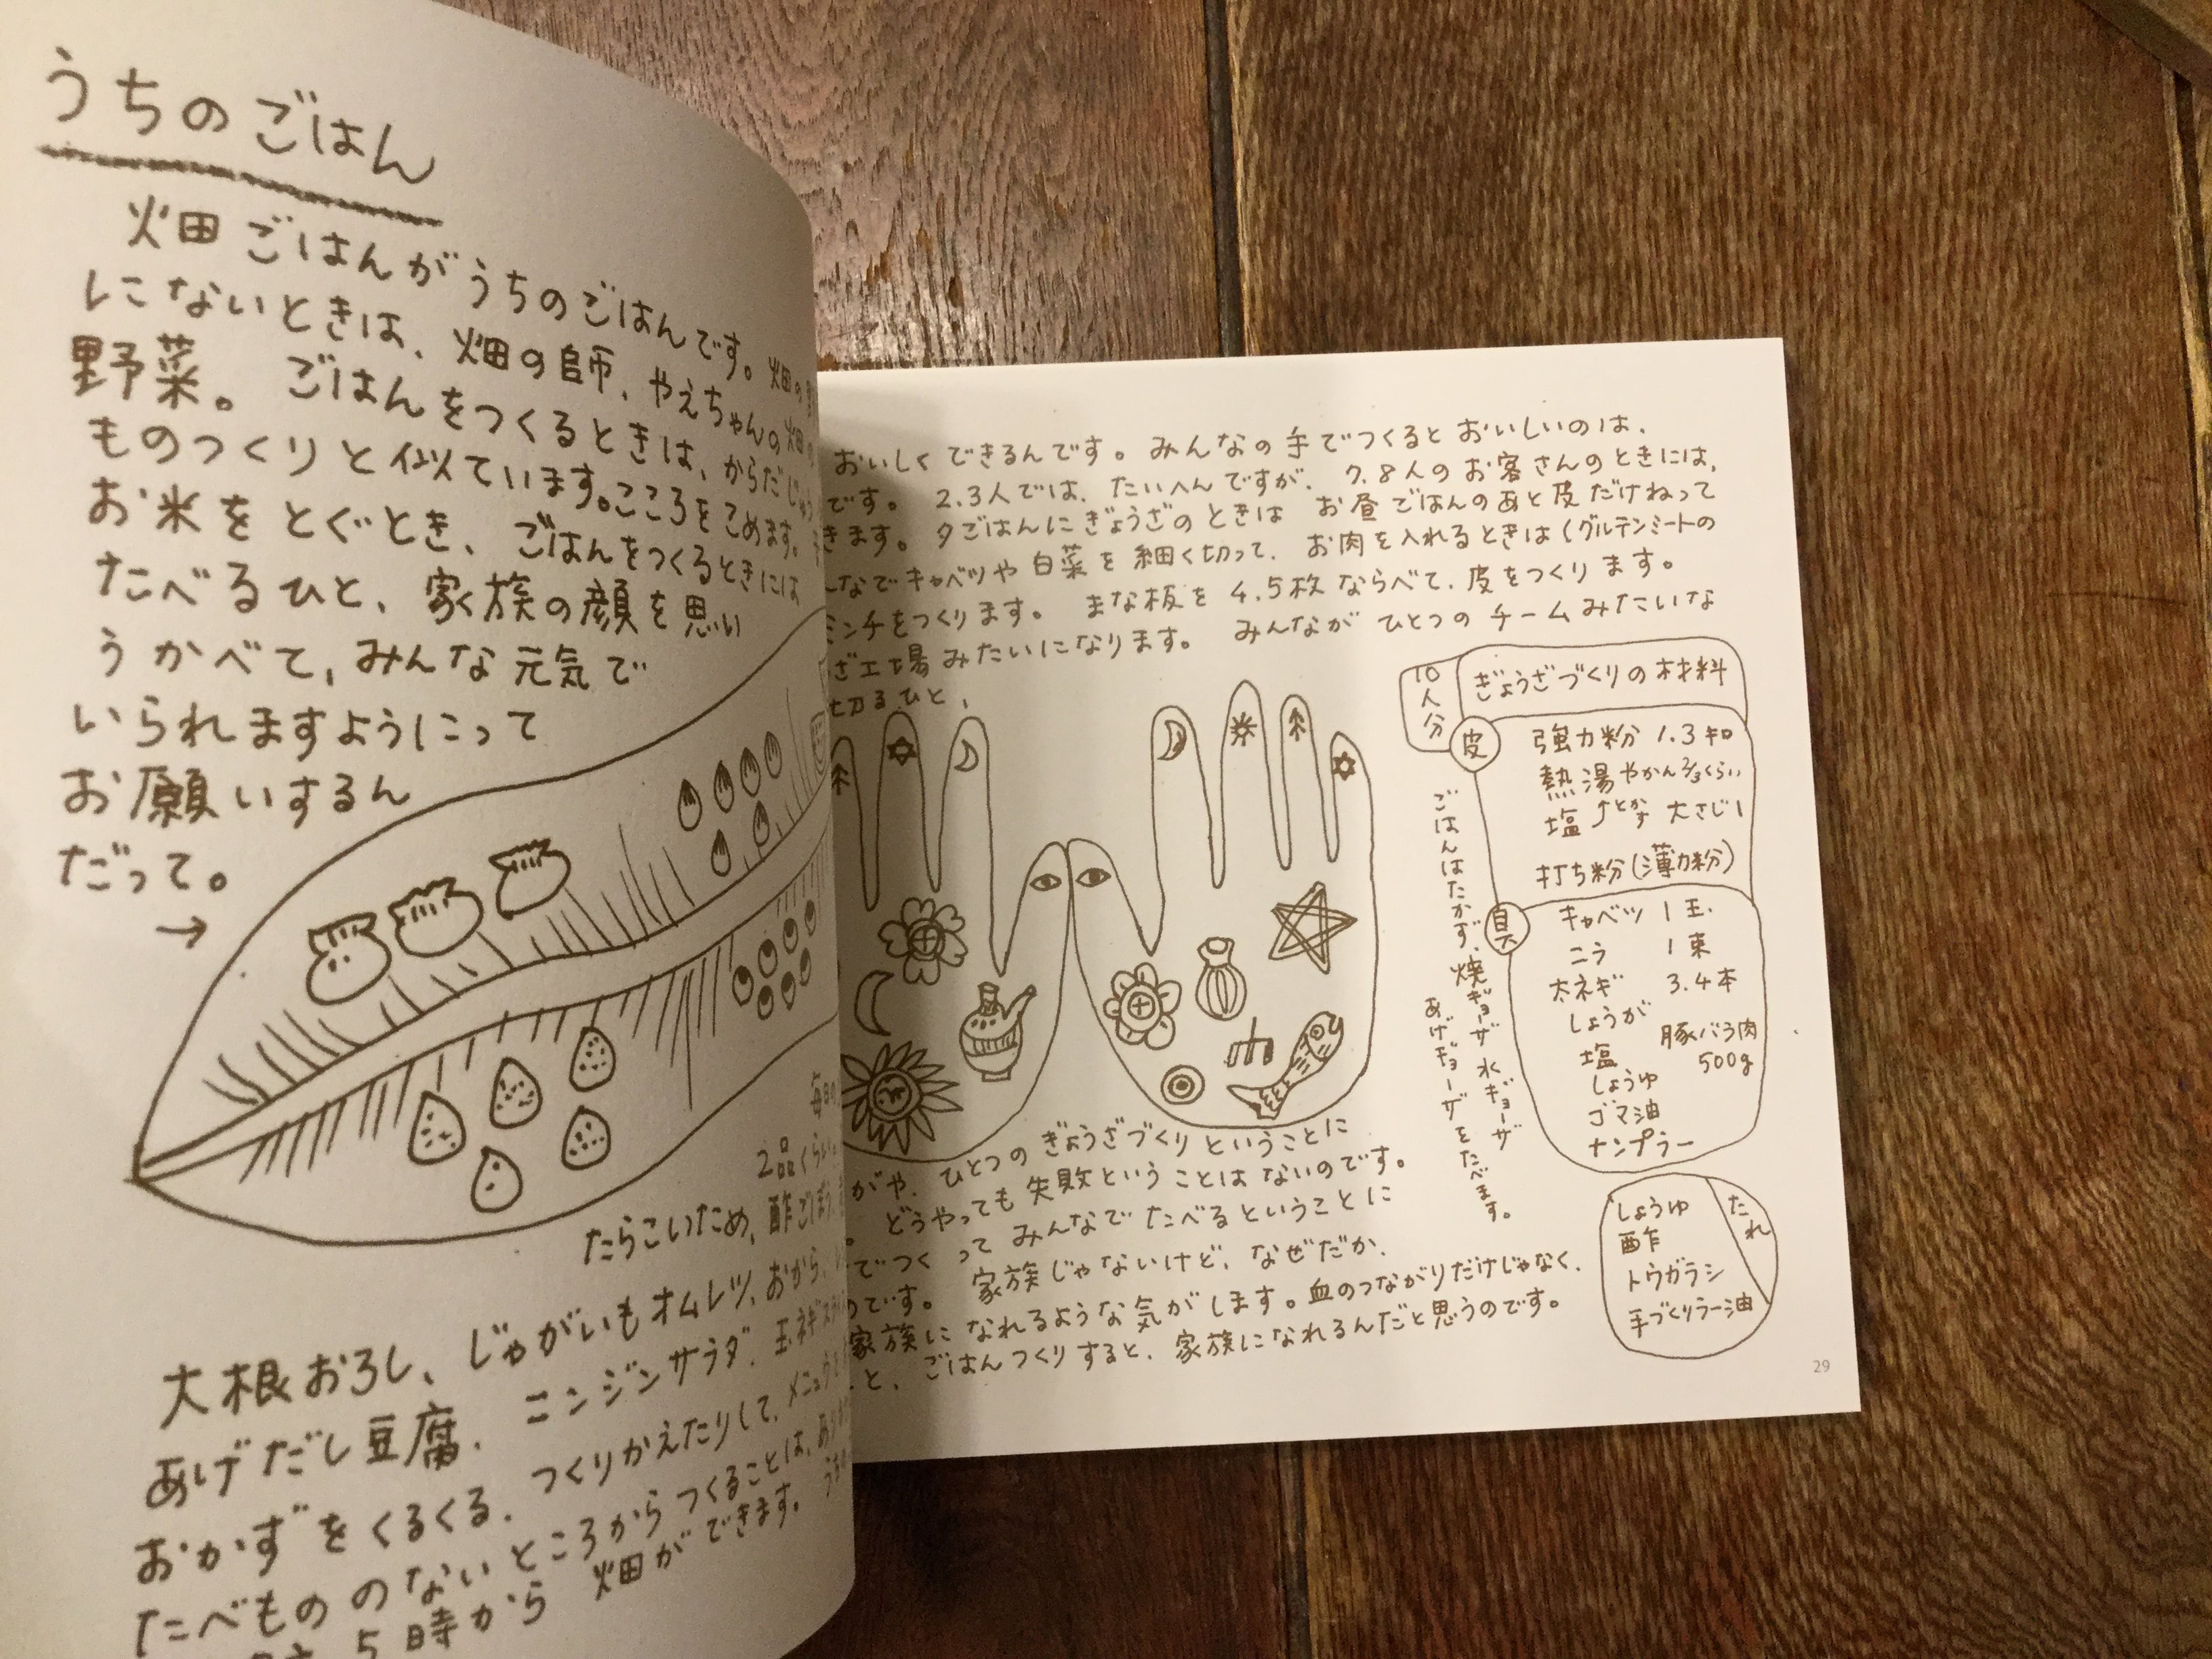 うちのごはん
畑ごはんがうちのごはんです。畑の
にないときは、畑の師、やえちゃんの畑の
野菜。ごはんをつくるときは、からだじゅう
ものつくりと似ています。こころをこめます。
お米をとぐとき、ごはんをつくるときには
たべるひと、家族の顔を思い
うかべて、みんな元気で
いられますようにって
お願いするん
だって。
→
毎日の
2品くらい、
たらこいため、酢ごぼう、
大根おろし、じゃがいもオムレツ、おから、
あげだし豆腐、ニンジンサラダ、玉ネギ
おかずをくるくる、つくりかえたりして、メニュウ
たべもののないところからつくることは、
5時から 畑ができます。
おいしくできるんです。みんなの手でつくるとおいしいのは、
です。2.3人では、たいへんですが、7.8人のお客さんのときには、
きます。夕ごはんにぎょうざのときは お昼ごはんのあと皮だけねって
なでキャベツや白菜を細く切って、お肉を入れるときは(グルテンミートの
ミンチをつくります。まな板を4.5枚ならべて、皮をつくります。
ざ工場みたいになります。みんながひとつのチームみたいな
切るひと、
がや、ひとつのぎょうざづくりということに
どうやっても失敗ということはないのです。
でつくって みんなでたべるということに
のです。家族じゃないけど、なぜだか、
家族になれるような気がします。血のつながりだけじゃなく、
と、ごはんつくりすると、家族になれるんだと思うのです。
ごはんはたかず、焼ギョーザ 水ギョーザ
あげギョーザをたべます。
10人分
ぎょうざづくりの材料
皮
強力粉 1.3キロ
熱湯やかん2/3くらい
塩 ↑とかす 大さじ1
打ち粉(薄力粉)
具
キャベツ 1玉
ニラ 1束
太ネギ 3.4本
しょうが
豚バラ肉
500g
塩
しょうゆ
ゴマ油
ナンプラー
たれ
しょうゆ
酢
トウガラシ
手づくりラー油
29